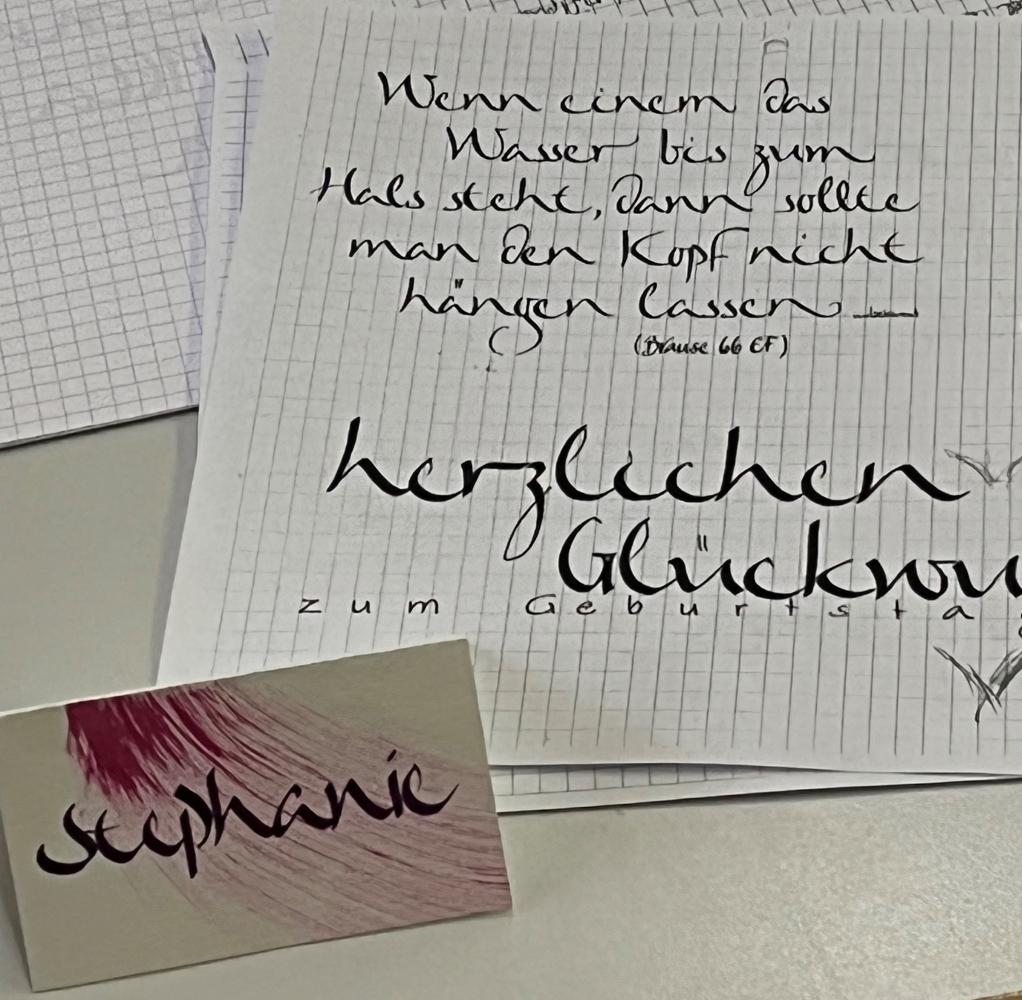 Wenn einem das
Wasser bis zum
Hals steht, dann sollte
man den Kopf nicht
hängen lassen
(Brause 66 EF)
herzlichen
Glückwu
zum Geburtsta
stephanie